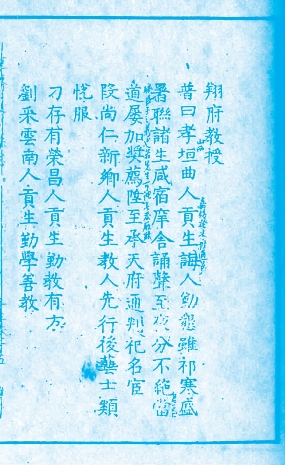 翔府教授
普曰孝垣曲人貢生誨人勤懇雖祁寒盛
暑聯諸生咸宿庠舍誦聲至夜分不絶當
道屢加奬薦陞至承天府通判祀名宦
段尚仁新鄉人貢生教人先行後藝士類
悦服
刁存有榮昌人貢生勤教有方
劉采雲南人貢生勤學善教